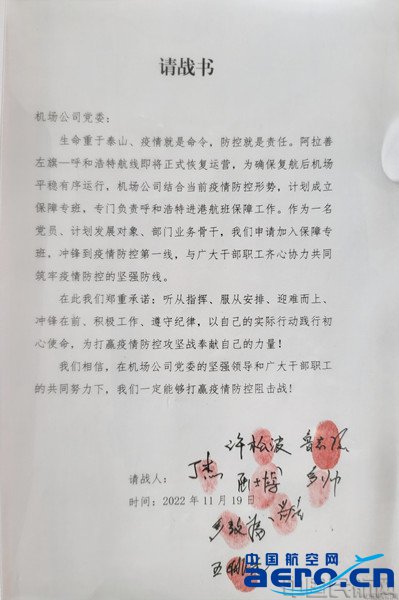 请战书
机场公司党委：
生命重于泰山、疫情就是命令，防控就是责任。阿拉善
左旗—呼和浩特航线即将正式恢复运营，为确保复航后机场
平稳有序运行，机场公司结合当前疫情防控形势，计划成立
保障专班，专门负责呼和浩特进港航班保障工作。作为一名
党员、计划发展对象、部门业务骨干，我们申请加入保障专
班，冲锋到疫情防控第一线，与广大干部职工齐心协力共同
筑牢疫情防控的坚强防线。
在此我们郑重承诺：听从指挥、服从安排、迎难而上、
冲锋在前、积极工作、遵守纪律，以自己的实际行动践行初
心使命，为打赢疫情防控攻坚战奉献自己的力量！
我们相信，在机场公司党委的坚强领导和广大干部职工
的共同努力下，我们一定能够打赢疫情防控阻击战！
许松波
请战人： 丁杰
时间：2022 年 11 月 19 日
中国航空网
aero.cn